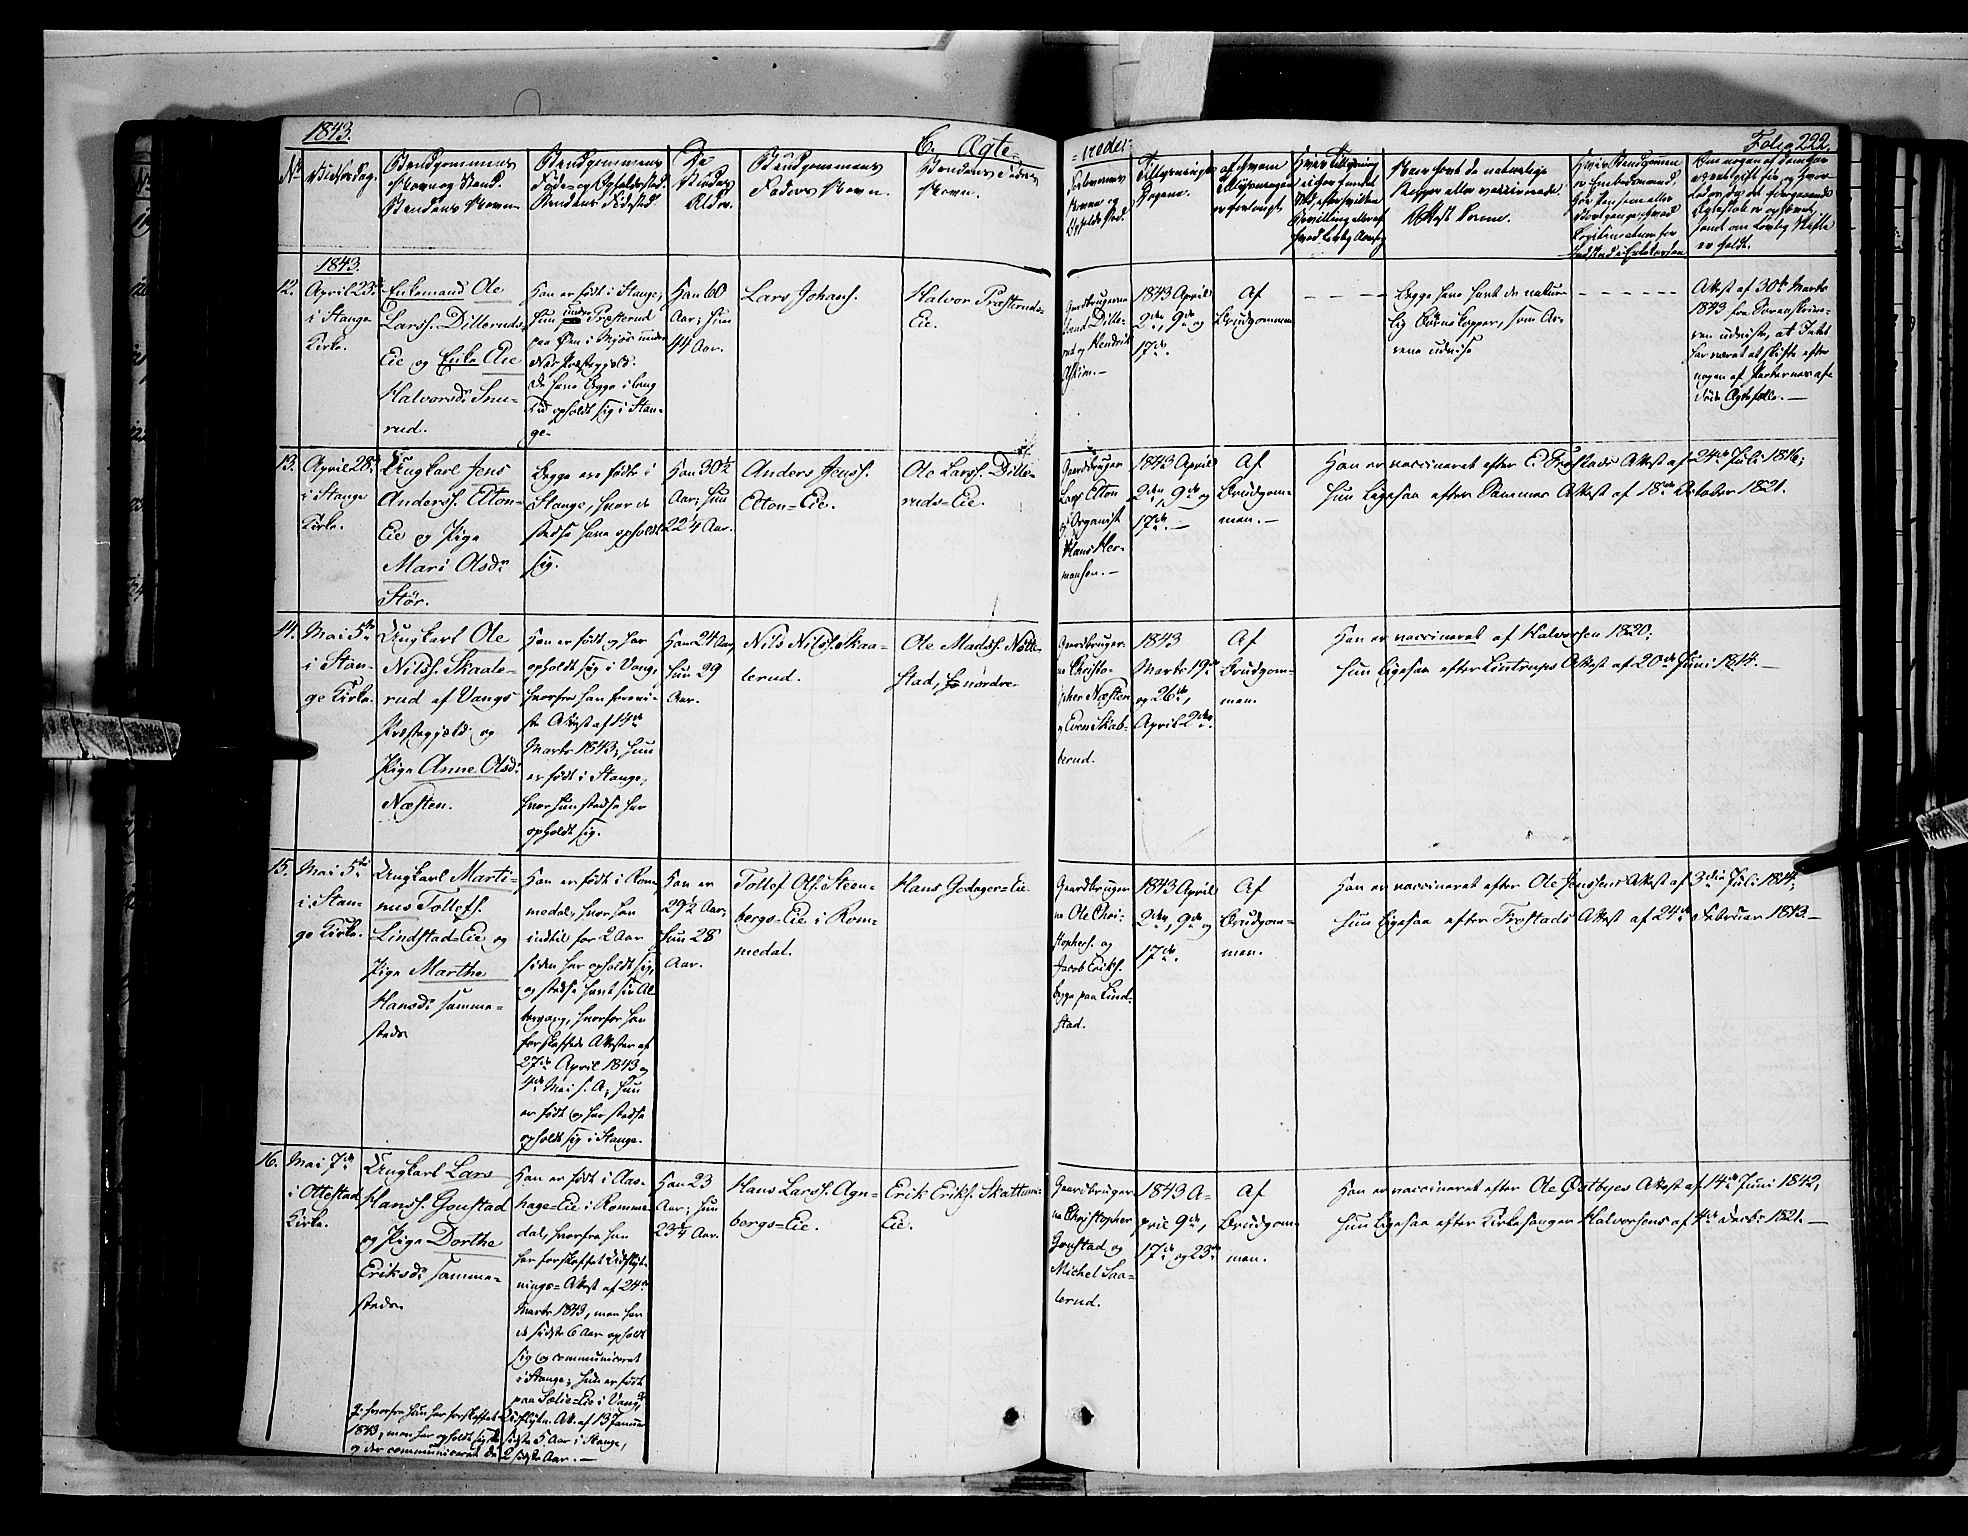 1843.
C. Ægte=
=viede.
Folio 222.
No
Vielsesdag.
Brudgommens
Navn og Stand.
Brudens Navn
Brudgommens
Føde- og Opholdssted.
Brudens Fødested.
De
Viedes
Alder.
Brudgommens
Faders Navn.
Brudens Faders
Navn.
Forlovernes
Navn og
Opholdssted.
Tillysnings
Dagene.
af hvem
Tillysningen
er forlangt.
Naar have de naturlige
Kopper eller vaccinerede.
Attest derom.
1843.
12.
April 23de
i Stange
Kirke.
Enkemand Ole
Larss. Dilleruds-
Eie og Enke Eie
Halvorsd. Snu-
rud.
Han er født i Stange;
hun under Præsterud
paa Øen i Mjøs under
Næs Præstegjeld.
De have begge i lang
Tid opholdt sig i Stan-
ge.
Han 60
Aar; hun
44 Aar.
Lars Johans.
Halvor Præsteruds-
Eie.
Gaardbrugerne
Dille-
rud og Hendrik
1843 April
2den, 9de og
17de.
Af
Brudgommen
Begge have havt de natur-
lig Børnekopper, som Ar-
rene udvise
Attest af 30te Marts
1843 fra Sorenskrive-
ren udviser, at Intet
har været at skifte efter
nogen af Parternes af-
døde Ægtefælle.—
13.
April 28de
i Stange
Kirke.
Ungkarl Jens
Anderss. Elton-
Eie og Pige
Mari Olsdr
Stør.
Begge ere fødte i
Stange, hvor de
stedse have opholdt
sig.
Han 30½
Aar; hun
22¼ Aar.
Anders Jenss.
Elton=Eie.
Ole Larss. Dille-
ruds=Eie.
Gaardbruger
Lars Elton
og Organist
Hans Her-
mansen.—
1843 April
2den, 9de og
17de.—
Af
Brudgom-
men.—
Han er vaccineret efter E. Frøstads Attest af 24de Juli 1816;
hun ligesaa efter Sammes Attest af 18de October 1821.
14.
Mai 5te
i Stan-
ge Kirke.
Ungkarl Ole
Nilss. Skaale-
rud af Vangs
Præstegjeld og
Pige Anne Olsd.
Næsten.
Han er født og har
opholdt sig i Vang,
hvorfra han forevi-
ste Attest af 14de
Marts 1843; hun
er født i Stange,
hvor hun stedse har
opholdt sig.
Han 24 Aar,
hun 29
Aar.
Nils Nilss. Skaa-
lerud.
Ole Madss. Nøtte-
stad, nordre
Gaardbruger-
ne Christo-
pher Næsten
og Even Skab-
berud.
1843
Marts 19de
og 26de,
April 2den.
Af
Brudgom-
men.
Han er vaccineret af Halvorsen 1820;
hun ligesaa efter Lintrups Attest af 20de Juni 1814.—
15.
Mai 5te
i Stan-
ge Kirke.
Ungkarl Marti-
nus Tollefs.
Lindstad=Eie og
Pige Marthe
Hansd. samme-
steds
Han er født i Rom-
medal, hvor han
indtil for 2 Aar
siden har opholdt sig,
og stedse havt sin Al-
tergang, hvorfor han
forskaffede Attester af
27de April 1843 og
4de Mai s. A; hun
er født og har stedse
opholdt sig i Stange.
Han er
29½ Aar;
hun 28
Aar.
Tollef Ols. Steen-
bergs=Eie i Rom-
medal.
Hans Godager=Eie.
Gaardbruger-
ne Ole Chri-
stophers. og
Jacob Eriks.
begge paa Lind-
stad.
1843 April
2den, 9de og
17de.
Af
Brudgom-
men.
Han er vaccineret efter Ole Jenssens Attest af 3die Juli 1814;
hun ligesaa efter Frøstads Attest af 24de Februar 1843.—
16.
Mai 7de
i Ottestad
Kirke.
Ungkarl Lars
Hanss. Gonstad
og Pige Dorthe
Eriksd. samme-
steds
Han er født i Aas-
hage=Eie i Romme-
dal, hvorfra han
har forskaffet Udflyt-
nings=Attest af 24de
Marts 1843, men har
de sidste 6 Aar opholdt
sig og communiceret
i Stange; hun er født
paa Sælie=Eie i Vang,
hvorfra hun har forskaffet Udflytn. Att. af 13 Januar
1843, men har opholdt sig de sidste 5 Aar i Stange,
og der communiceret de 2 sidste Aar.—
Han 23
Aar; hun
23¼ Aar.
Hans Larss. Agn-
bergs=Eie.
Erik Eriks. Skattum-
Eie.
Gaardbruger-
ne Christopher
Gonstad og
Michel Saa-
lerud.
1843 A-
pril 9de,
17de og 23de
Af
Brudgom-
men.
Han er vaccineret efter Ole Østbyes Attest af 14de Juni 1842;
hun ligesaa efter Kirkesanger Halvorsens af 4de Decbr 1821.—